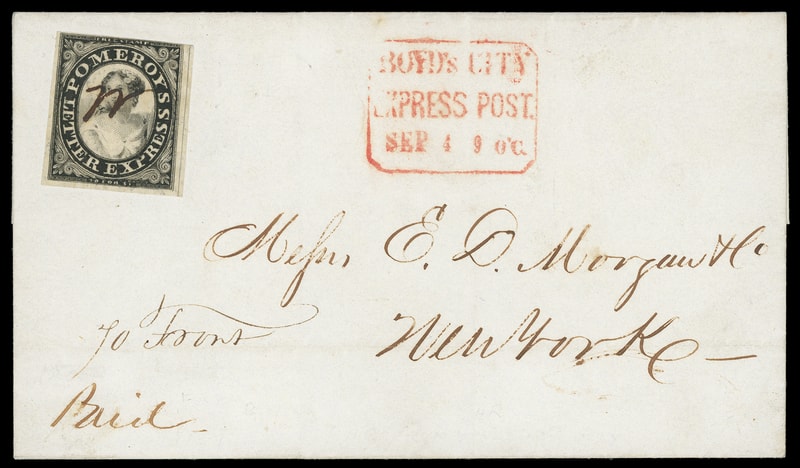 FREE STAMP
POMEROY'S
LETTER EXPRESS
20 FOR $1
BOYD'S CITY
EXPRESS POST.
SEP 4 9 O'C.
Messrs E. D. Morgan & Co
New York
70 Front
Paid